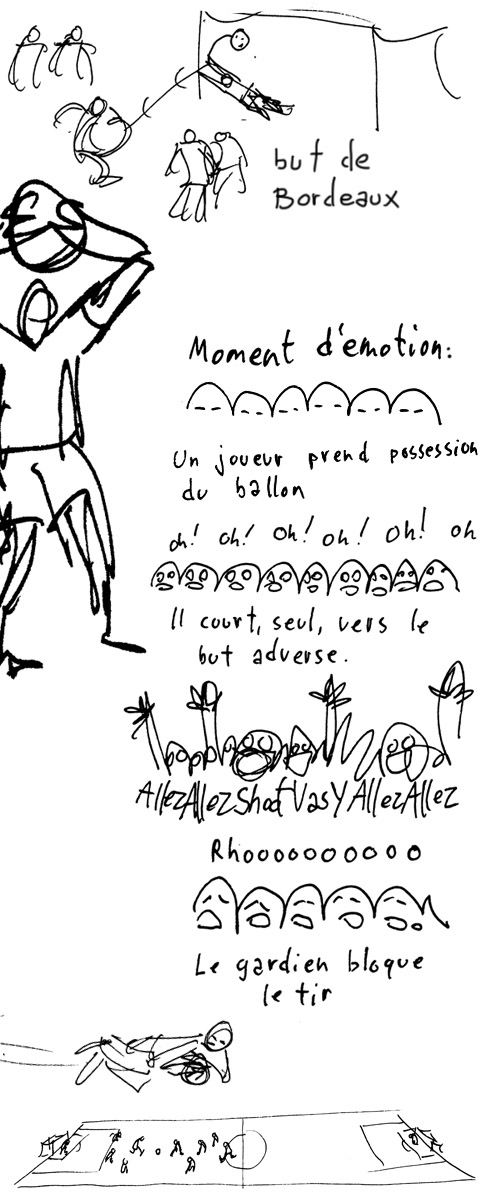 but de
Bordeaux
Moment d'émotion:
Un joueur prend possession
du ballon
oh! oh! oh! oh! oh! oh
Il court, seul, vers le
but adverse.
AllezAllezShootVasYAllezAllez
Rhooooooooooo
Le gardien bloque
le tir